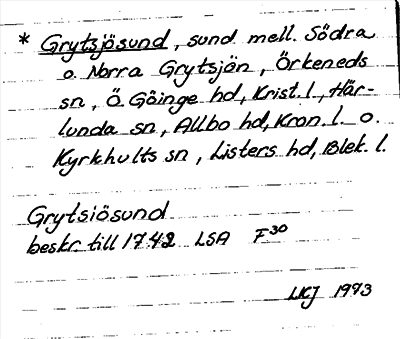 * Grytsjösund, sund mell. Södra
o. Norra Grytsjön, Örkeneds
sn, Ö. Göinge hd, Krist. l., Här-
lunda sn, Allbo hd, Kron. l. o.
Kyrkhults sn, Listers hd, Blek. l.
Grytsiösund
beskr. till 1742 LSA F30
1973